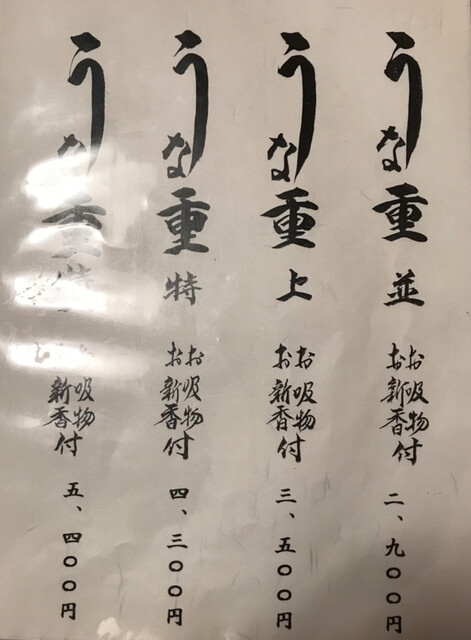 うな重 並
お吸物
お新香付
二、九〇〇円
うな重 上
お吸物
お新香付
三、五〇〇円
うな重 特
お吸物
お新香付
四、三〇〇円
うな重
お吸物
お新香付
五、四〇〇円